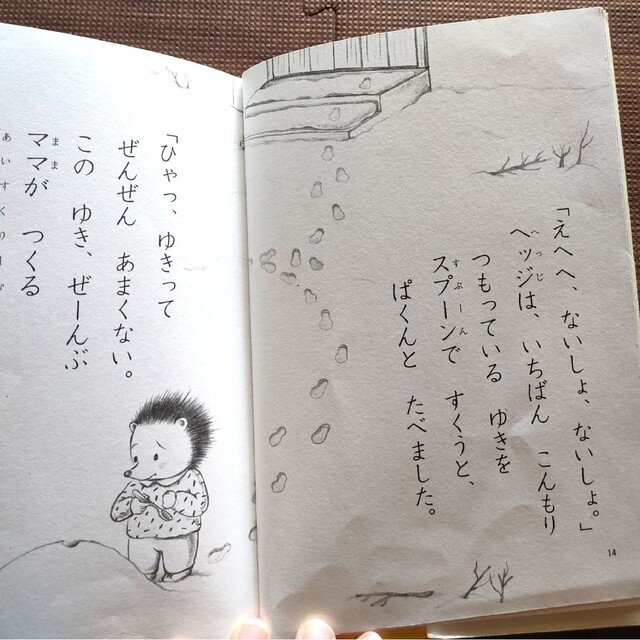 「えへへ、ないしょ、ないしょ。」
へっじ
ヘッジは、いちばん　こんもり
つもっている　ゆきを
すぷーん
スプーンで　すくうと、
ぱくんと　たべました。
14
「ひゃっ、ゆきって
ぜんぜん　あまくない。
この　ゆき、ぜーんぶ
まま
ママが　つくる